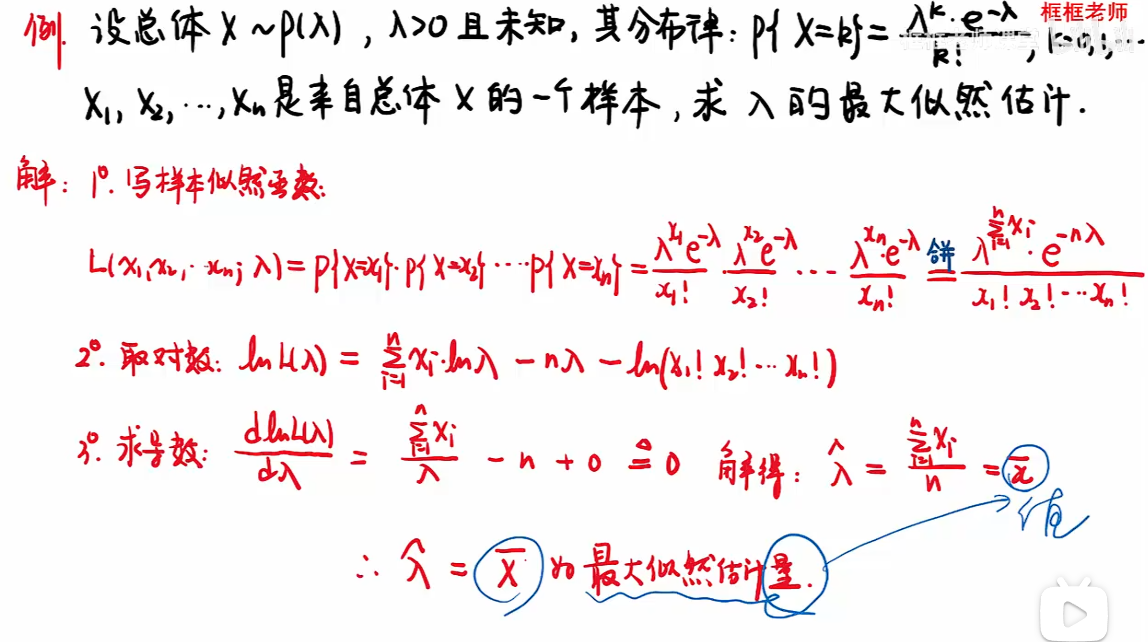 例. 设总体 X ~ P(λ), λ>0 且未知, 其分布律: P{X=k} = λ^k·e^{-λ}/k!, k=0,1,…
框框老师
X₁, X₂, …, Xₙ 是来自总体 X 的一个样本, 求 λ 的最大似然估计.
解: 1°. 写样本似然函数:
L(x₁,x₂,…xₙ; λ) = P{X=x₁}·P{X=x₂}····P{X=xₙ} = λ^{x₁}e^{-λ}/x₁! · λ^{x₂}e^{-λ}/x₂! ··· λ^{xₙ}·e^{-λ}/xₙ! = 併 λ^{Σ_{i=1}^{n} xᵢ}·e^{-nλ}/(x₁! x₂! ··· xₙ!)
2°. 取对数: ln L(λ) = Σ_{i=1}^{n} xᵢ·lnλ - nλ - ln(x₁! x₂! ··· xₙ!)
3°. 求导数: d lnL(λ)/dλ = Σ_{i=1}^{n} xᵢ/λ - n + 0 ≜ 0 解得: λ̂ = Σ_{i=1}^{n} xᵢ/n = x̄
值
∴ λ̂ = X̄ 为最大似然估计量.